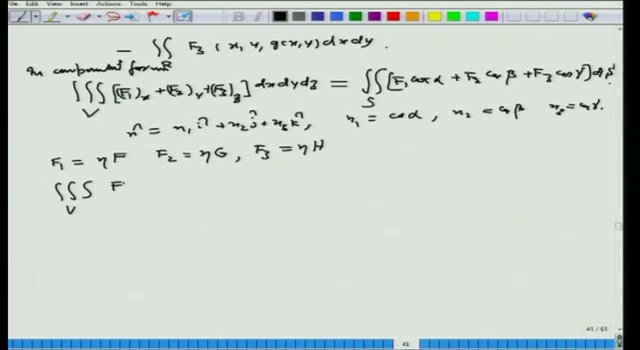 View Insert Actions Tools Help
− ∬_R F₃ (x, y, g(x,y)) dx dy.
In component form
∭_V [(F₁)_x + (F₂)_y + (F₃)_z] dx dy dz = ∬_S [F₁ cos α + F₂ cos β + F₃ cos γ] dS
n̂ = n₁ î + n₂ ĵ + n₃ k̂, n₁ = cos α, n₂ = cos β n₃ = cos γ.
F₁ = ηF F₂ = ηG, F₃ = ηH
∭_V F
41 / 61
41